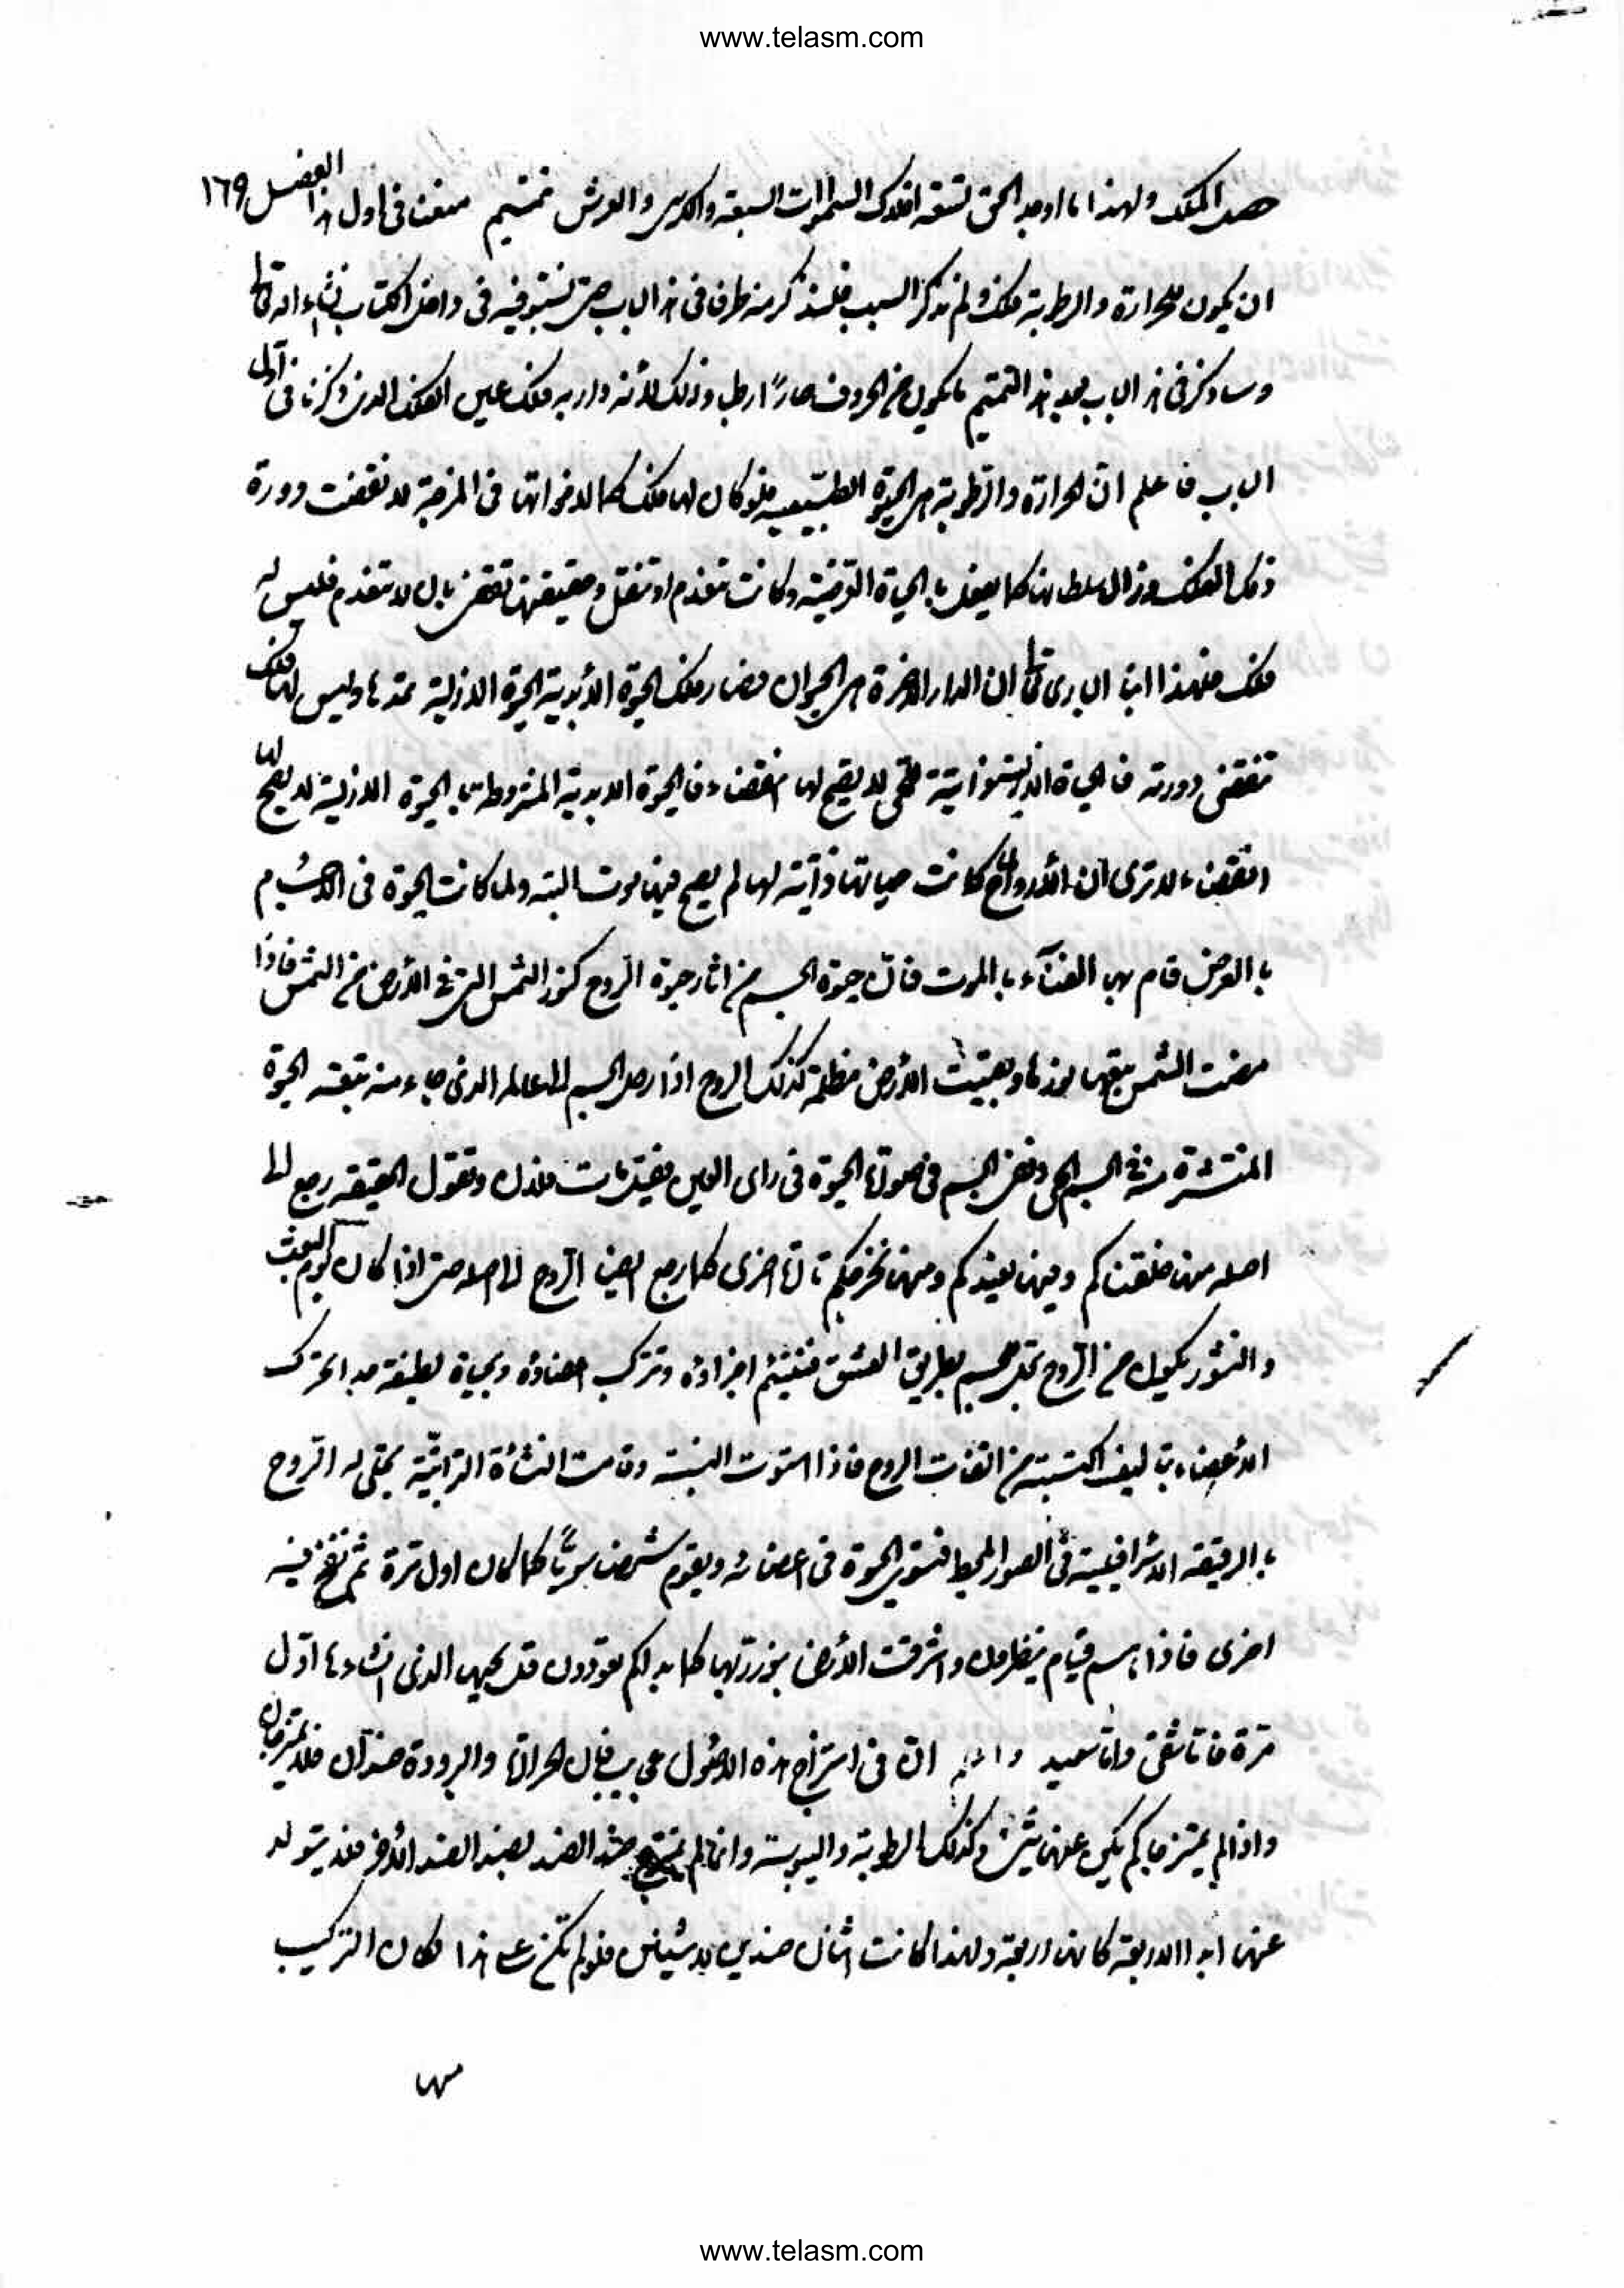 www.telasm.com
ولهذا ما اوجد الحق تسعة افلاك السموات السبعة والكرسى والعرش تتميم منعنا فى اول هذا الفصل ١٦٩
ان يكون للحرارة والرطوبة فلك ولم نذكر السبب فلنذكر منه طرفا فى هذا الباب حتى نستوفيه فى داخل الكتاب انشاء الله تعالى
وساذكر فى هذا الباب بعد هذا التتميم ما يكون من الحروف حارًا رطبا وذلك لأنه دار به فلك غير الفلك الذى ذكرناه فى اول
الباب فاعلم انّ الحرارة والرّطوبة هى الحيوة الطبّيعيه فلو كان لها فلك كما لاخواتها فى المزجة لانقضت دورة
ذلك الفلك وزال سلطانه كما يظهر فى الحياة العرضيّة وكانت تنعدم او تنتقل وحقيقتها تقضى بان لا تنعدم فليس له
فلك فلهذا انبأ البارى تعالى ان الدار الاخرة هى الحيوان فصار فلك الحيوة الأبدية الحيوة الازلية تمدها وليس لها فلك
تنقضى دورته فالحياة الذاتية للحى لا يصح لها انقضاء فالحيوة الابدية المشروطة بالحيوة الازلية لا يصح لها
انقضاء الا ترى ان الأرواح لما كانت حياتها ذاتية لها لم يصح فيها موت البته ولما كانت الحيوة فى الاجسام
بالعرض قام بها الفنآء بالموت فانّ حيوة الجسم من اثار حيوة الرّوح كنور الشمس التى فى الأرض من الشمس فاذا
مضت الشمس تبعها نورها وبقيت الأرض مظلمة كذلك الروح اذا رحل الجسم الى العالم الذى جاء منه تبعته الحيوة
المنتشرة منه فى الجسم الحى وبقى الجسم فى صورة الجماد فى راى العين فيقال مات فلان وتقول الحقيقه رجع الى
اصله منها خلقناكم وفيها نعيدكم ومنها نخرجكم تارة اخرى كما رجع ايضا الرّوح الى اصله حتى اذا كان يوم البعث
والنشور يكون من الرّوح تجلى للجسم بطريق العشق فتلتئم اجزاؤه وتركب اعضاؤه بحياة لطيفة جدا تحرك
الأعضاء بتاليف اكتسبته من التفات الروح فاذا استوت البنية وقامت النشأة الترابيّة تجلى له الرّوح
بالرقيقة الاسرافيلية فى الصور المحيط فتسرى الحيوة فى اعضائه ويقوم شخصا سويًّا كما كان اول مرة ثم نفخ فيه
اخرى فاذا هم قيام ينظرون واشرقت الأرض بنور ربّها كما بدأكم تعودون قل يحييها الذى انشاءها اوّل
مرّة فامّا شقىّ وامّا سعيد انّ فى امتزاج هذه الاصول عجايب فان الحرارة والبرودة ضدان فلا يمتزجان
واذا لم يمتزجا لم يكن عنهما شئ وكذلك الرطوبة واليبوسة وانما يمتزج ضد الضد بضد الضد الأخر فلا يتولد
عنها ابدا الا اربعة لانها اربعة ولهذا كانت اثنان ضدين لاثنين فلو لم تكن على هذا لكان التركيب
منها
www.telasm.com